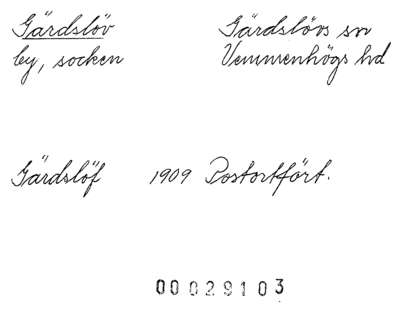 Gärdslöv Gärdslövs sn
by, socken Vemmenhögs hd
Gärdslöf 1909 Postortfört.
00029103